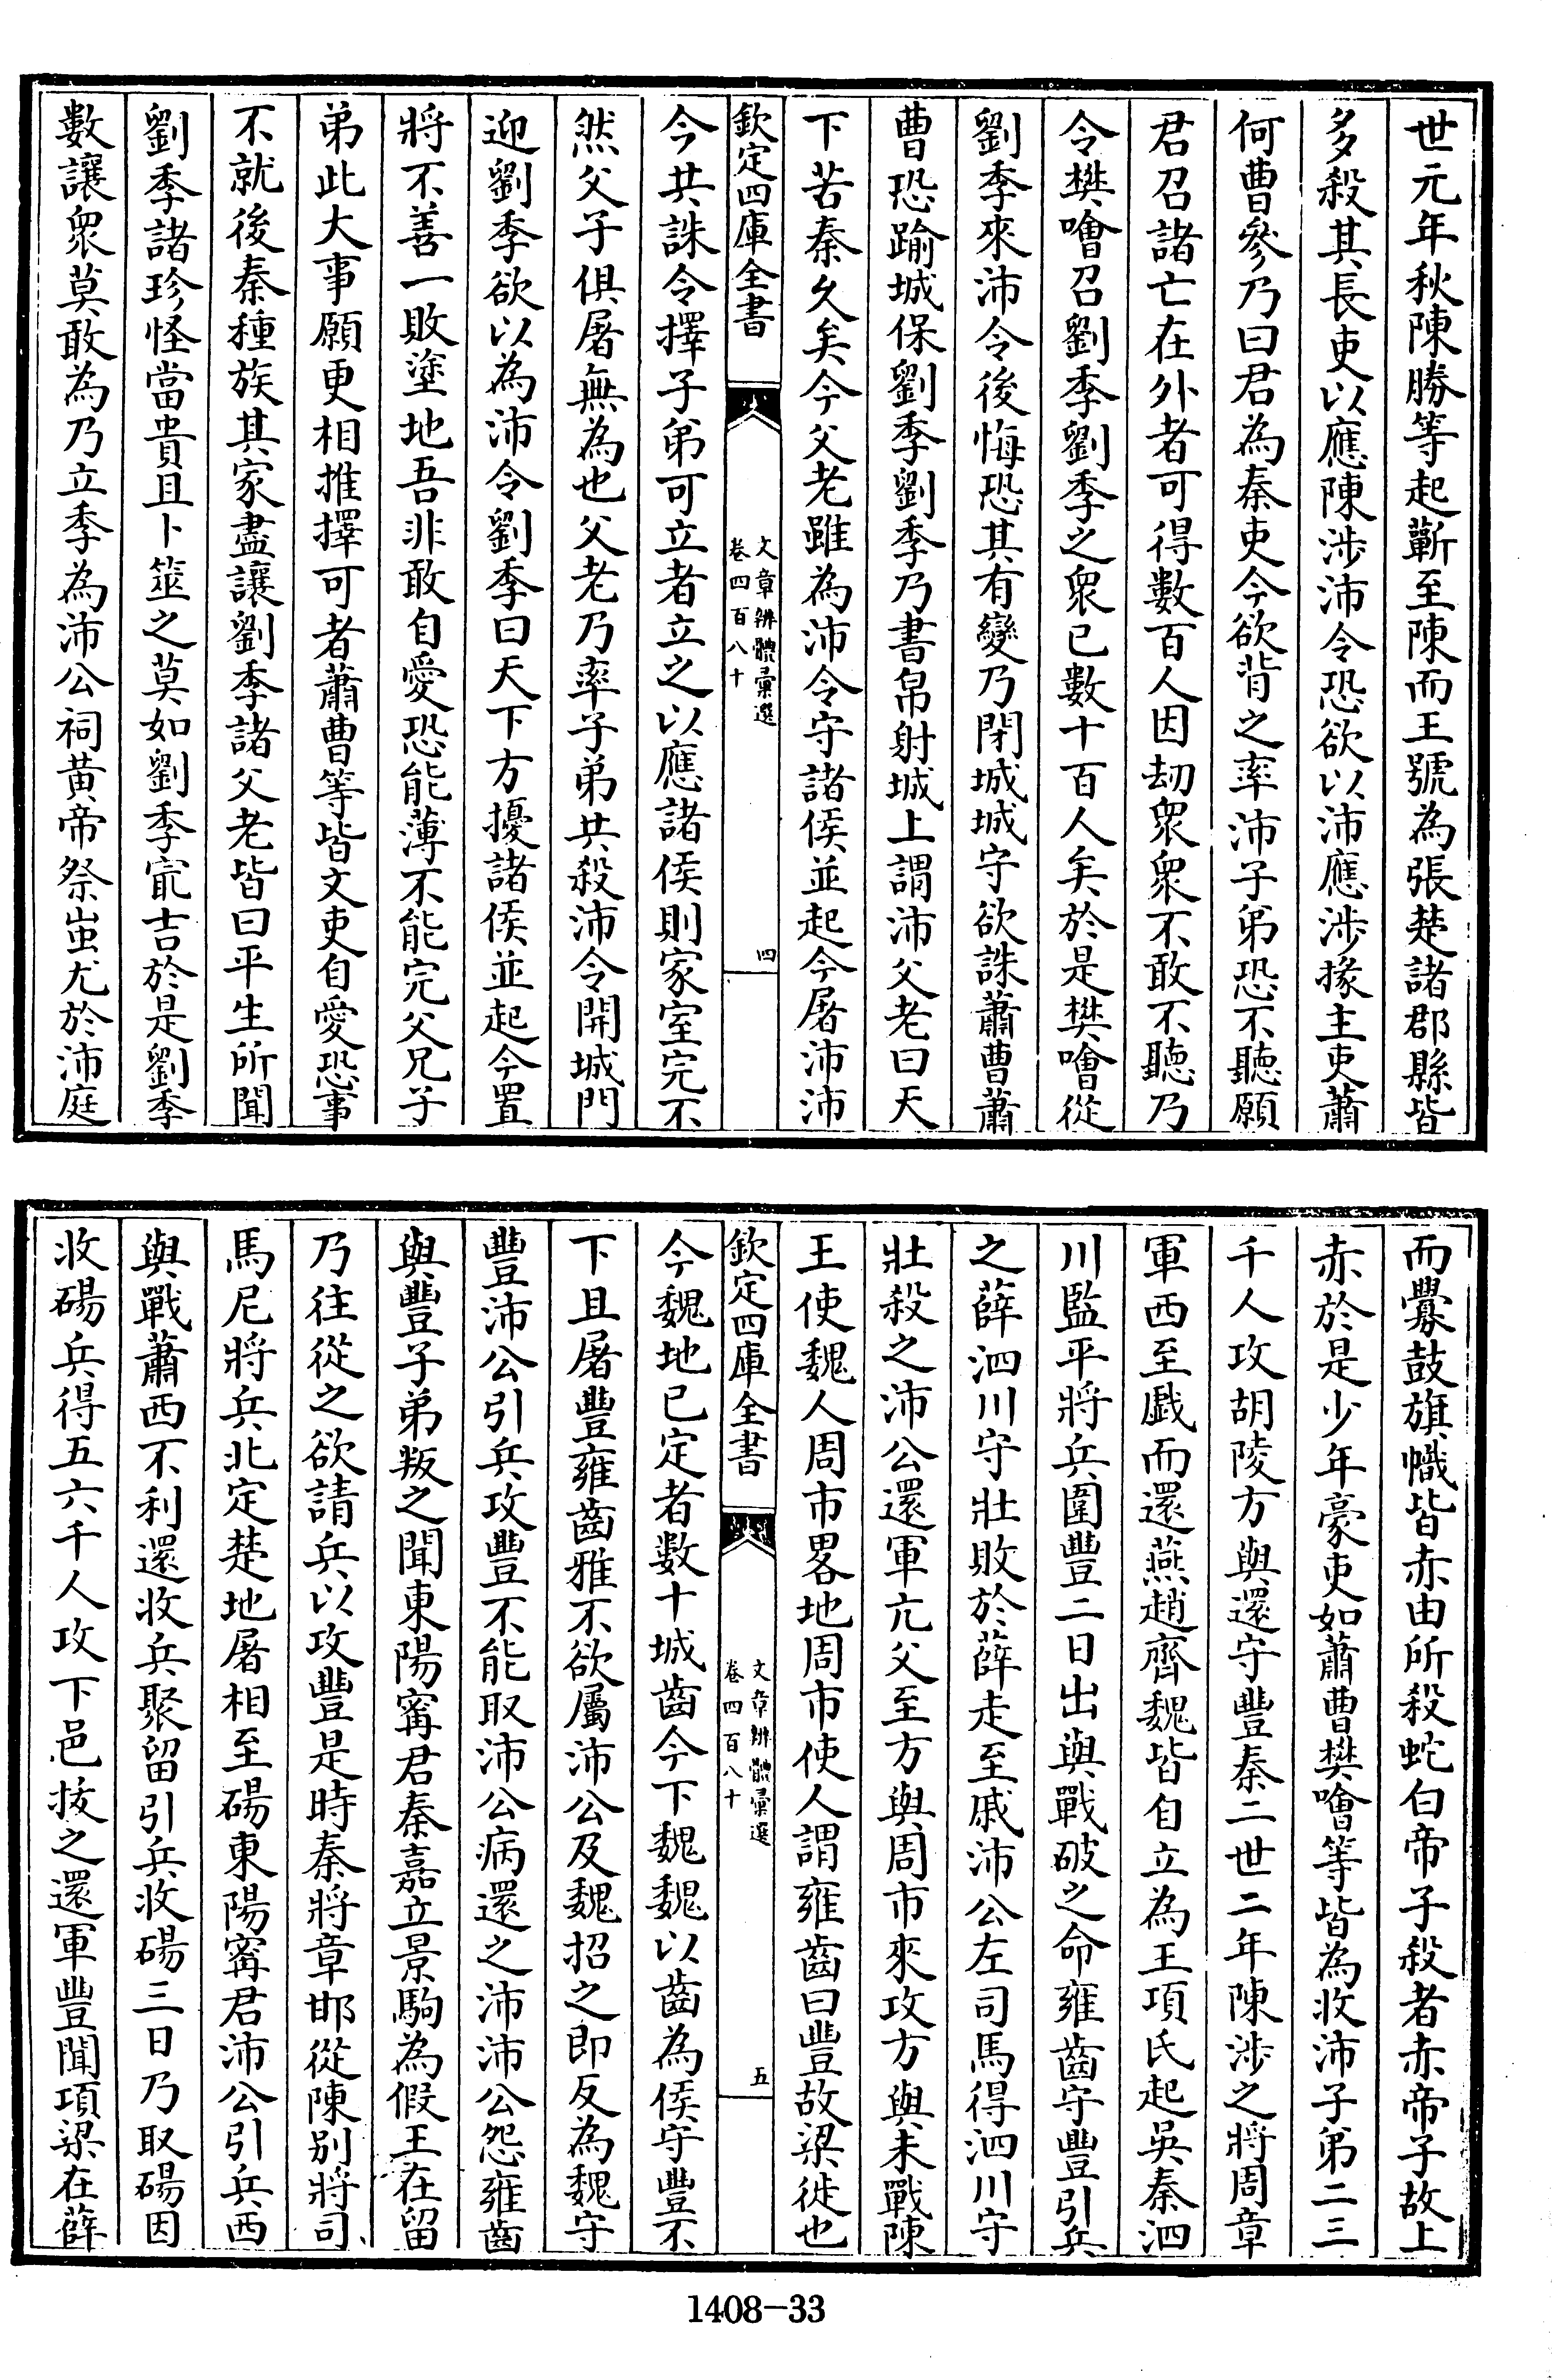 世元年秋陳勝等起蘄至陳而王號為張楚諸郡縣皆
多殺其長吏以應陳涉沛令恐欲以沛應涉掾主吏蕭
何曹參乃曰君為秦吏今欲背之率沛子弟恐不聽願
君召諸亡在外者可得數百人因刼眾眾不敢不聽乃
令樊噲召劉季劉季之眾已數十百人矣於是樊噲從
劉季來沛令後悔恐其有變乃閉城城守欲誅蕭曹蕭
曹恐踰城保劉季劉季乃書帛射城上謂沛父老曰天
下苦秦久矣今父老雖為沛令守諸侯並起今屠沛沛
欽定四庫全書
文章辨體彙選
卷四百八十
四
今共誅令擇子弟可立者立之以應諸侯則家室完不
然父子俱屠無為也父老乃率子弟共殺沛令開城門
迎劉季欲以為沛令劉季曰天下方擾諸侯並起今置
將不善一敗塗地吾非敢自愛恐能薄不能完父兄子
弟此大事願更相推擇可者蕭曹等皆文吏自愛恐事
不就後秦種族其家盡讓劉季諸父老皆曰平生所聞
劉季諸珍怪當貴且卜筮之莫如劉季寂吉於是劉季
數讓眾莫敢為乃立季為沛公祠黃帝祭蚩尤於沛庭
而釁鼓旗幟皆赤由所殺蛇白帝子殺者赤帝子故上
赤於是少年豪吏如蕭曹樊噲等皆為收沛子弟二三
千人攻胡陵方與還守豐秦二世二年陳涉之將周章
軍西至戲而還燕趙齊魏皆自立為王項氏起吳秦泗
川監平將兵圍豐二日出與戰破之命雍齒守豐引兵
之薛泗川守壯敗於薛走至戚沛公左司馬得泗川守
壯殺之沛公還軍亢父至方與周市來攻方與未戰陳
王使魏人周市畧地周市使人謂雍齒曰豐故梁徙也
欽定四庫全書
文章辨體彙選
卷四百八十
五
今魏地已定者數十城齒今下魏魏以齒為侯守豐不
下且屠豐雍齒雅不欲屬沛公及魏招之即反為魏守
豐沛公引兵攻豐不能取沛公病還之沛沛公怨雍齒
與豐子弟叛之聞東陽甯君秦嘉立景駒為假王在留
乃往從之欲請兵以攻豐是時秦將章邯從陳別將司
馬尼將兵北定楚地屠相至碭東陽甯君沛公引兵西
與戰蕭西不利還收兵聚留引兵收碭三日乃取碭因
收碭兵得五六千人攻下邑拔之還軍豐聞項梁在薛
1408-33